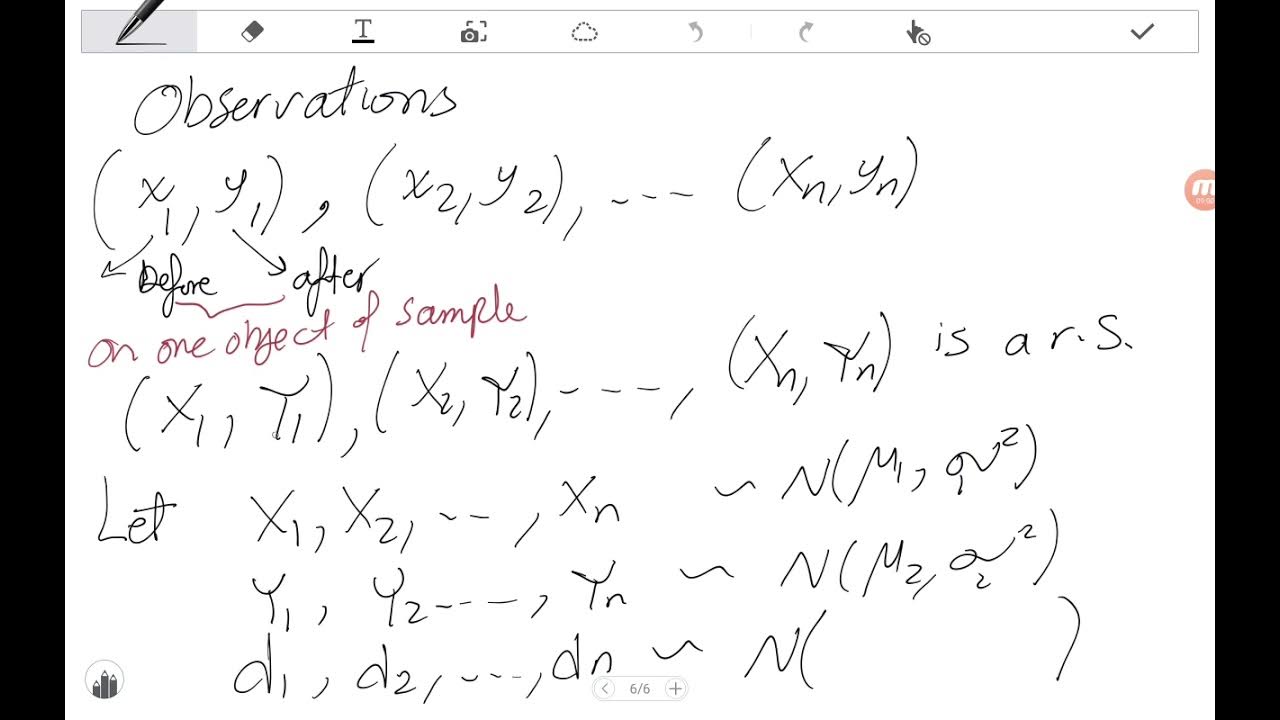 T
Observations
(x₁, y₁), (x₂, y₂), --- (xₙ, yₙ)
09:00
before after
on one object of sample
(X₁, Y₁), (X₂, Y₂), ----, (Xₙ, Yₙ) is a r.S.
Let X₁, X₂, ---, Xₙ ~ N(μ₁, σ₁²)
Y₁, Y₂ ----, Yₙ ~ N(μ₂, σ₂²)
d₁, d₂, ----, dₙ ~ N( )
6/6